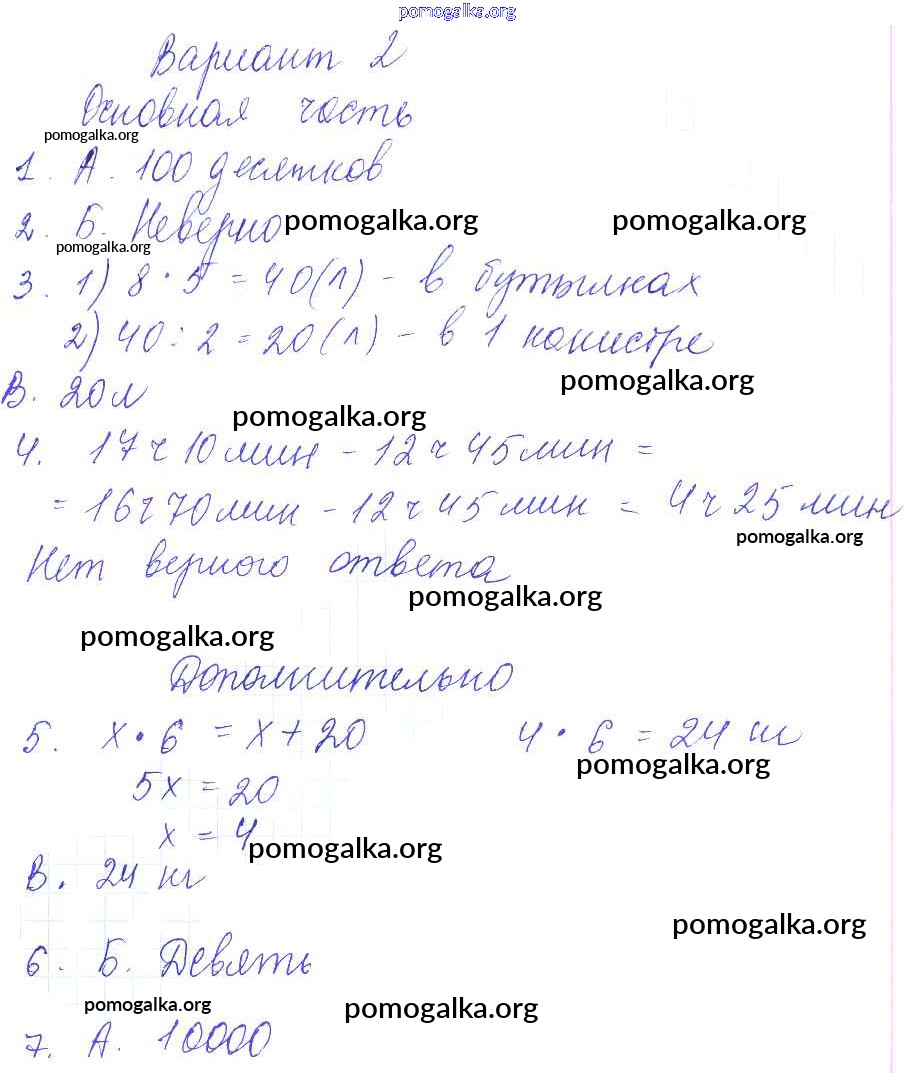 pomogalka.org
Вариант 2
Основная часть
pomogalka.org
1. А. 100 десятков
2. Б. Неверно pomogalka.org pomogalka.org
pomogalka.org
3. 1) 8 · 5 = 40 (л) - в бутылках
2) 40 : 2 = 20 (л) - в 1 канистре
pomogalka.org
В. 20 л
pomogalka.org
4. 17 ч 10 мин - 12 ч 45 мин =
= 16 ч 70 мин - 12 ч 45 мин = 4 ч 25 мин
pomogalka.org
Нет верного ответа
pomogalka.org
pomogalka.org
Дополнительно
5. х · 6 = х + 20 4 · 6 = 24 кг
pomogalka.org
5х = 20
х = 4
pomogalka.org
В. 24 кг
pomogalka.org
6. Б. Девять
pomogalka.org pomogalka.org
7. А. 10000